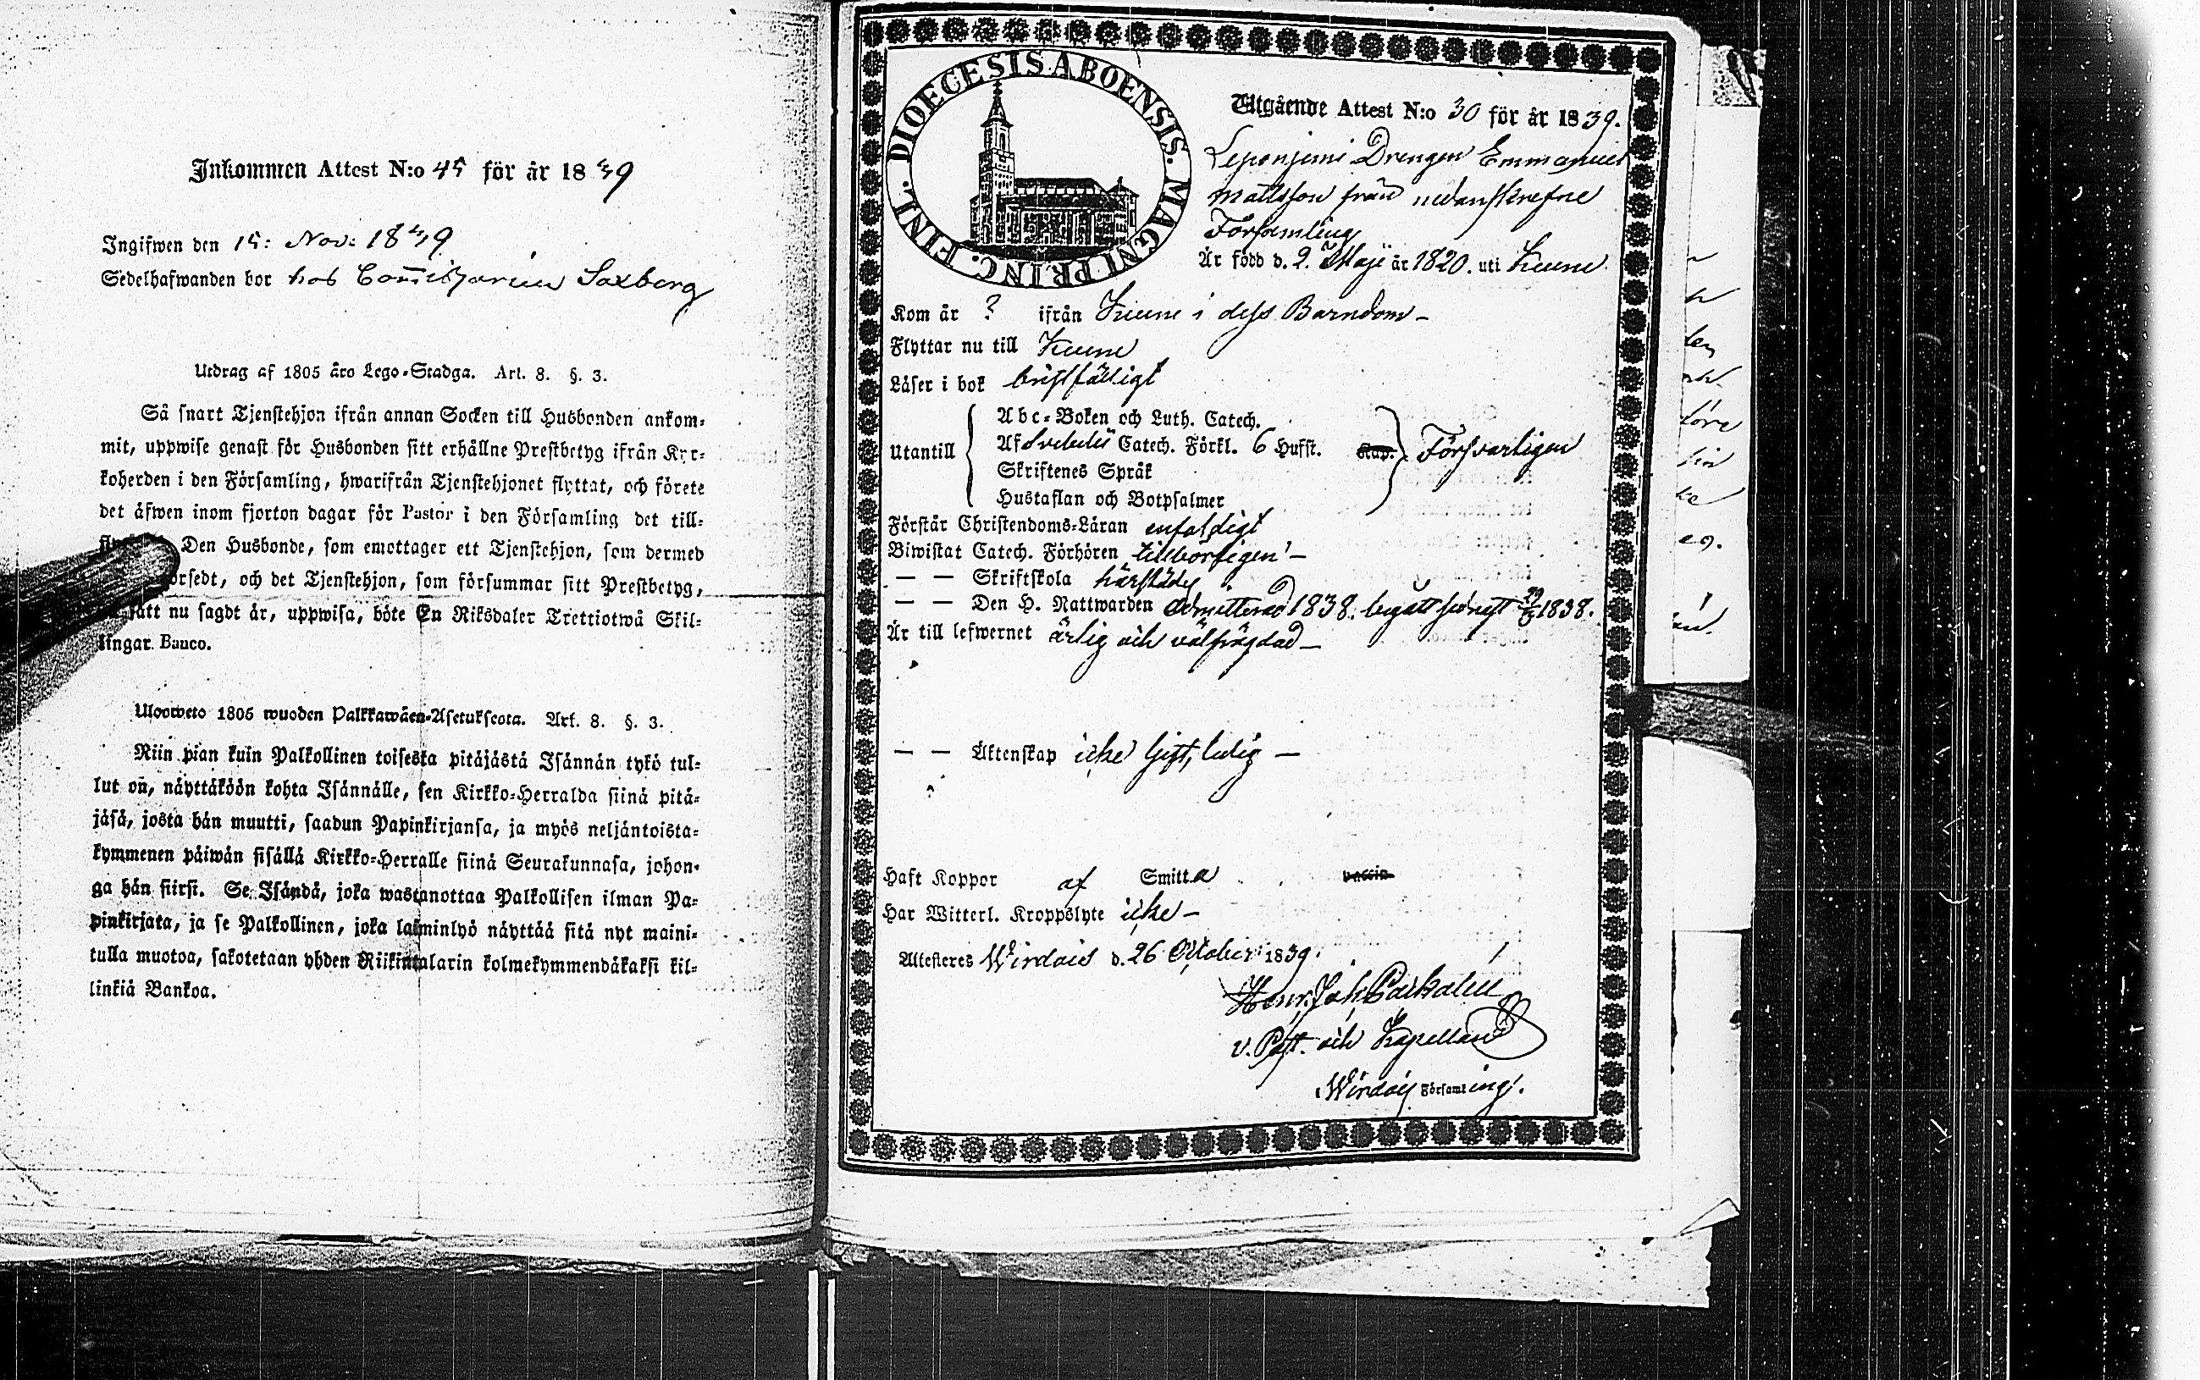 Inkommen Attest N:o 45 för år 1839
Ingifwen den 15: Nov: 1839
Sedelhafwanden bor hos Com̄issarien Saxberg
Utdrag af 1805 åro Lego-Stadga. Art. 8. §. 3.
Så snart Tjenstehjon ifrån annan Socken till Husbonden ankom-
mit, uppwise genast för Husbonden sitt erhållne Prestbetyg ifrån Kyr-
koherden i den Församling, hwarifrån Tjenstehjonet flyttat, och förete
det åfwen inom fjorton dagar för Pastor i den Församling det till-
Den Husbonde, som emottager ett Tjenstehjon, som dermed
och det Tjenstehjon, som försummar sitt Prestbetyg,
sått nu sagdt år, uppwisa, böte En Riksdaler Trettiotwå Skil-
lingar Banco.
Ulosweto 1805 wuoden Palkkawäen-Asetuksesta. Art. 8. §. 3.
Niin pian kuin Palkollinen toisesta pitäjästä Isännän tykö tul-
lut on, näyttäköön kohta Isännälle, sen Kirkko-Herralda siinä pitä-
jäsä, josta hän muutti, saadun Papinkirjansa, ja myös neljäntoista-
kymmenen päiwän sisällä Kirkko-Herralle siinä Seurakunnasa, johon-
ga hän siirsi. Se Isändä, joka wastanottaa Palkollisen ilman Pa-
pinkirjata, ja se Palkollinen, joka laiminlyö näyttää sitä nyt maini-
tulla muotoa, sakotetaan yhden Riikintalarin kolmekymmendäkaksi kil-
linkiä Bankoa.
DIOECESIS ABOENSIS. MAGNI PRINC. FINL.
Utgående Attest N:o 30 för år 1839.
Drengen Emmanuel
Mattsson från nedanskrefne
Församling
Är född d. 2. Maji år 1820. uti Keuru
Kom år ? ifrån Keuru i dess Barndom –
Flyttar nu till Keuru
Läser i bok bristfälligt
Utantill
Abc-Boken och Luth. Catech.
Af Svebelii Catech. Förkl. 6 Hufst. Kap. Försvarligen
Skriftenes Språk
Hustaflan och Botpsalmer
Förstår Christendoms-Läran enfaldigt
Biwistat Catech. Förhören tillbörligen –
— — Skriftskola härstädes
— — Den H. Nattwarden admitterad 1838. begått sednast 1838.
Är till lefwernet ärlig och välfrägdad –
— — Äktenskap icke Gift, ledig –
Haft Koppor af Smitta vaccin
Har Witterl. Kroppslyte icke –
Attesteres Wirdois d. 26 October 1839.
Henr. Joh.
v. Past. och Kapellan
Wirdois Församling.